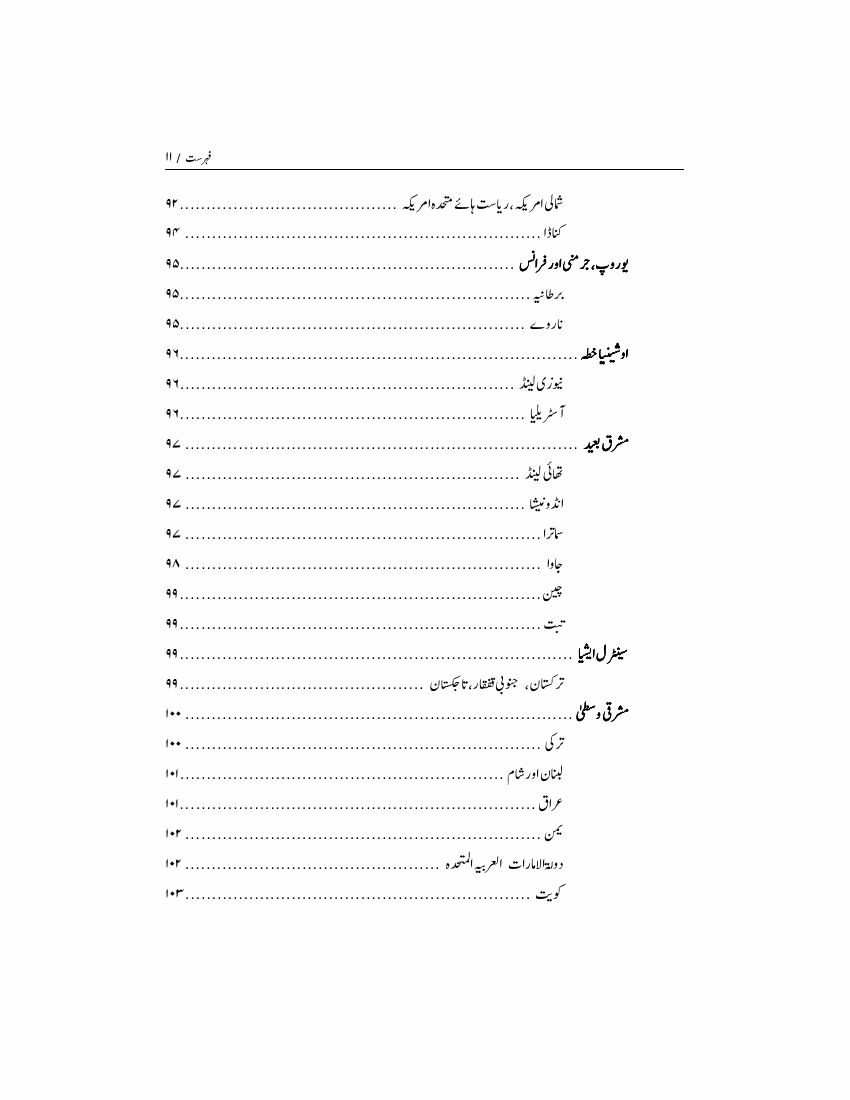 فہرست / ۱۱
شمالی امریکہ، ریاست ہائے متحدہ امریکہ ........................................ ۹۲
کناڈا .................................................................. ۹۴
یوروپ، جرمنی اور فرانس .............................................................. ۹۵
برطانیہ ................................................................. ۹۵
ناروے ................................................................ ۹۵
اوشینیا خطہ .......................................................................... ۹۶
نیوزی لینڈ .............................................................. ۹۶
آسٹریلیا ................................................................ ۹۶
مشرق بعید ......................................................................... ۹۷
تھائی لینڈ .............................................................. ۹۷
انڈونیشا ............................................................... ۹۷
سماترا .................................................................. ۹۷
جاوا .................................................................. ۹۸
چین ................................................................... ۹۹
تبت ................................................................... ۹۹
سینٹرل ایشیا ......................................................................... ۹۹
ترکستان، جنوبی قفقار، تاجکستان ............................................. ۹۹
مشرقی وسطیٰ ........................................................................ ۱۰۰
ترکی .................................................................. ۱۰۰
لبنان اور شام ............................................................ ۱۰۱
عراق .................................................................. ۱۰۱
یمن .................................................................. ۱۰۲
دولۃ الامارات العربیہ المتحدہ ............................................... ۱۰۲
کویت ................................................................ ۱۰۳